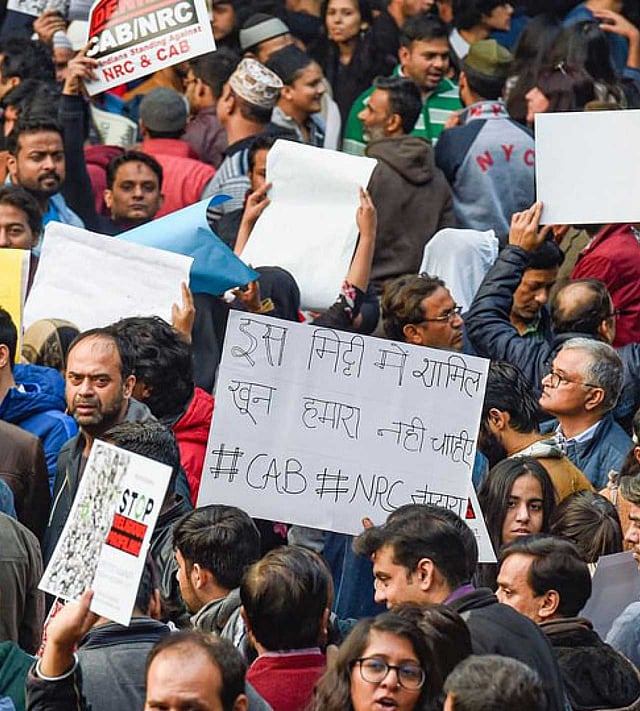 CAB/NRC
Indians Standing Against
NRC & CAB
NYC
इस मिट्टी मे शामिल
खून हमारा नही चाहीए
#CAB #NRC
STOP
RELIGIOUS
PROFILING